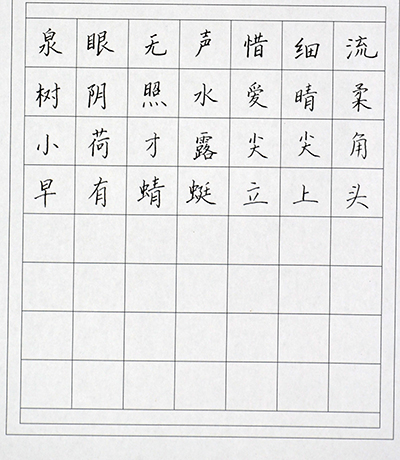 泉眼无声惜细流
树阴照水愛晴柔
小荷才露尖尖角
早有蜻蜓立上头